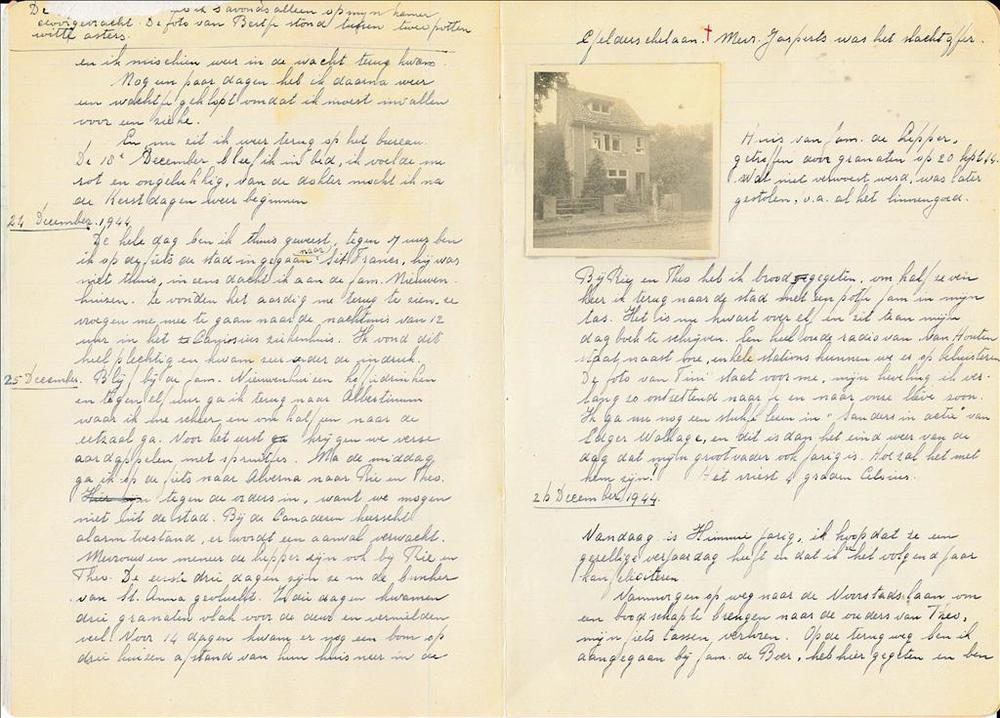 De
's avonds alleen op mijn kamer
doorgebracht. De foto van Bertje stond tussen twee potten
witte asters.
en ik misschien weer in de wacht terug kwam.
Nog een paar dagen heb ik daarna weer
een wachtje geklopt omdat ik moest invallen
voor een zieke.
En nu zit ik weer terug op het bureau.
De 18e December bleef ik in bed, ik voelde me
rot en ongelukkig, van de dokter mocht ik na
de Kerstdagen weer beginnen
24 December. 1944
De hele dag ben ik thuis geweest, tegen 7 uur ben
ik op de fiets de stad in gegaan naar Frans, hij was
niet thuis, in eens dacht ik aan de fam. Nieuwen-
huizen. Ze vonden het aardig me terug te zien. ze
vroegen me mee te gaan naar de nachtmis van 12
uur in het Canisius ziekenhuis. Ik vond dit
heel plechtig en kwam zeer onder de indruk.
25 December. Blijf bij de fam. Nieuwenhuizen koffiedrinken
en tegen elf uur ga ik terug naar Albertinum
waar ik me scheer en om half een naar de
eetzaal ga. Voor het eerst krijgen we verse
aardappelen met spruitjes. Na de middag
ga ik op de fiets naar Alverna naar Rie en Theo.
tegen de orders in, want we mogen
niet uit de stad. Bij de Canadezen heerscht
alarmtoestand, er wordt een aanval verwacht.
Mevrouw en meneer de Lepper zijn ook bij Rie en
Theo. De eerste drie dagen zijn ze in de bunker
van St. Anna gevlucht. In die dagen kwamen
drie granaten vlak voor de deur en vernielden
veel! Voor 14 dagen kwam er nog een bom op
drie huizen afstand van hun huis neer in de
Efelderschelaan. † Mevr. Jaspers was het slachtoffer.
Huis van fam. de Lepper,
getroffen door granaten op 20 sept. 44.
Wat niet verwoest werd, was later
gestolen, v.a. al het linnengoed.
Bij Rie en Theo heb ik brood gegeten, om half zeven
keer ik terug naar de stad met een potje jam in mijn
tas. Het is nu kwart over elf en zit aan mijn
dagboek te schrijven. Een heel oude radio van van Houten
staat naast me, enkele stations kunnen we er op beluisteren
De foto van Tini staat voor me, mijn lieveling ik ver-
lang zo ontzettend naar je en naar onze lieve zoon.
Ik ga nu nog een stukje lezen in "Sanders in actie" van
Edger Wallage, en dit is dan het eind weer van de
dag dat mijn grootvader ook jarig is. Hoe zal het met
hem zijn? Het vriest 4 graden Celsius.
26 December 1944.
Vandaag is Himmie jarig, ik hoop dat ze een
gezellige verjaardag heeft en dat ik ze het volgend jaar
kan feliciteren
Vanmorgen op weg naar de Voorstadslaan om
een boodschap te brengen naar de ouders van Theo,
mijn fietstassen verloren. Op de terugweg ben ik
aangegaan bij fam. de Boer, heb hier gegeten en ben